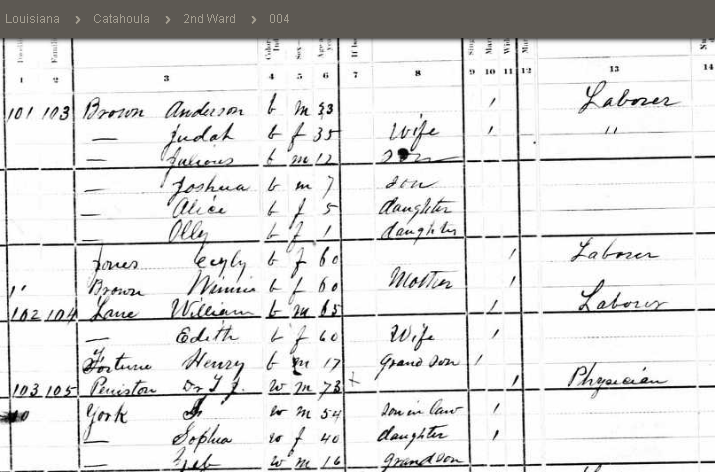 Louisiana > Catahoula > 2nd Ward > 004
1 2 3 4 5 6 7 8 9 10 11 12 13 14
101 103 Brown Anderson b m 33 / Laborer
— Judah b f 35 Wife / "
— Julious b m 12 son
— Joshua b m 7 son
— Alice b f 5 daughter
— Olly b f 1 daughter
Jones b f 60 / Laborer
Brown Winnie b f 60 Mother /
102 104 Lane William b m 65 / Laborer
— Edith b f 60 Wife /
Fortune Henry b m 17 Grand son /
103 105 Peniston Dr T J. w m 73 / Physician
York w m 54 son in law /
— Sophia w f 40 daughter /
— Zeb w m 16 grandson